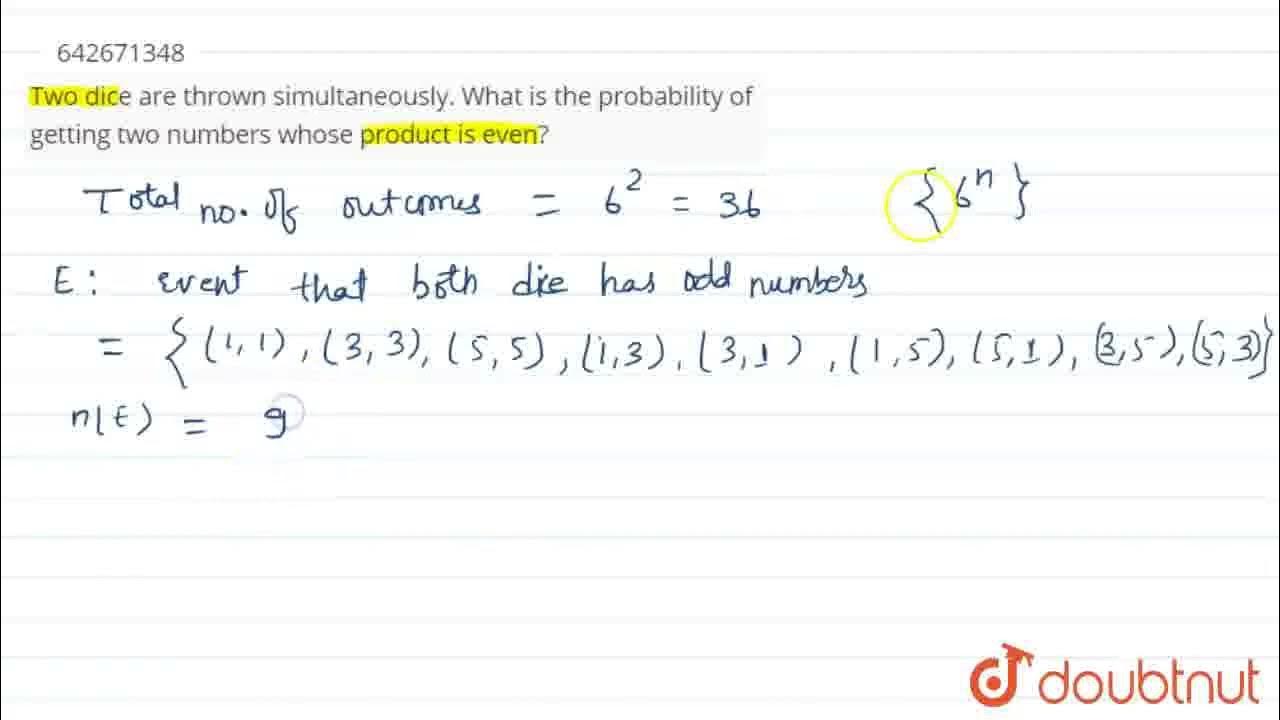 642671348
Two dice are thrown simultaneously. What is the probability of
getting two numbers whose product is even?
Total no. of outcomes = 6² = 36 {6ⁿ}
E : event that both die has odd numbers
= {(1,1), (3,3), (5,5), (1,3), (3,1), (1,5), (5,1), (3,5), (5,3)}
n(E) = 9
doubtnut